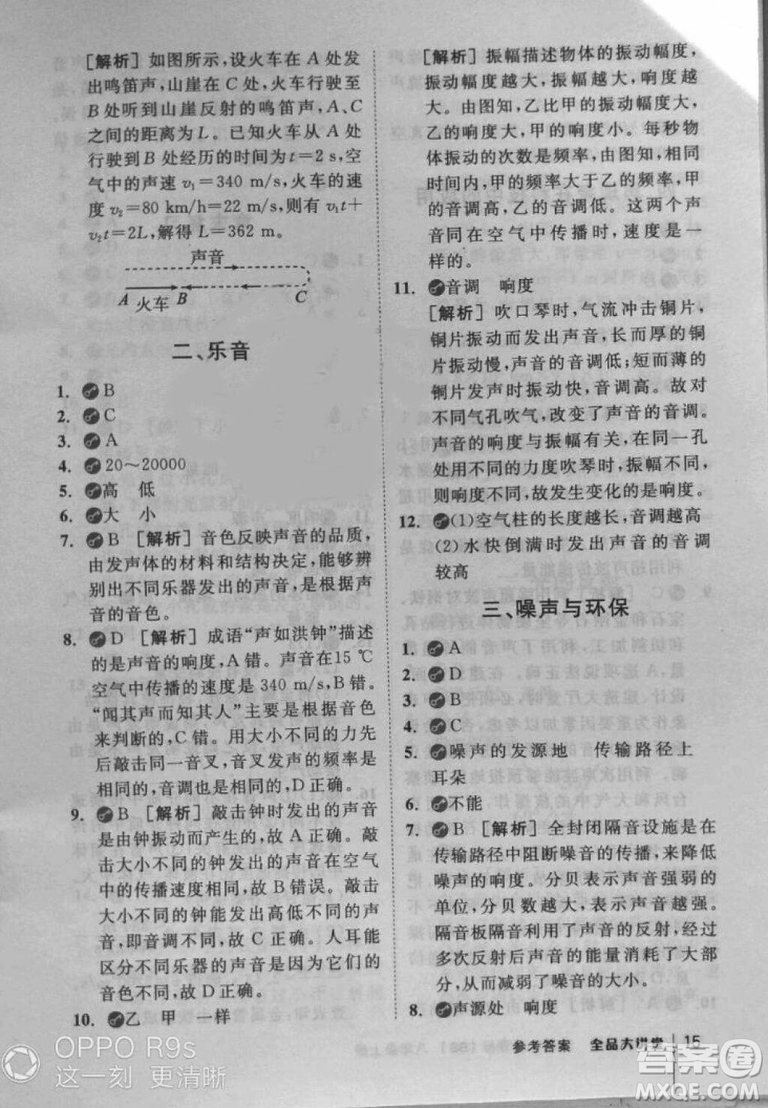 [解析] 如图所示,设火车在 A 处发
出鸣笛声,山崖在 C 处,火车行驶至
B 处听到山崖反射的鸣笛声,A、C
之间的距离为 L。已知火车从 A 处
行驶到 B 处经历的时间为 t=2 s,空
气中的声速 v₁=340 m/s,火车的速
度 v₂=80 km/h=22 m/s,则有 v₁t+
v₂t=2L,解得 L=362 m。
声音
A 火车 B C
二、乐音
1. B
2. C
3. A
4. 20～20000
5. 高 低
6. 大 小
7. B [解析] 音色反映声音的品质,
由发声体的材料和结构决定,能够辨
别出不同乐器发出的声音,是根据声
音的音色。
8. D [解析] 成语“声如洪钟”描述
的是声音的响度,A 错。声音在15 ℃
空气中传播的速度是 340 m/s,B 错。
“闻其声而知其人”主要是根据音色
来判断的,C 错。用大小不同的力先
后敲击同一音叉,音叉发声的响度会
不同,音调是相同的,D 正确。
9. B [解析] 敲击钟时发出的声音
是由钟振动而产生的,故 A 正确。敲
击大小不同的钟发出的声音在空气
中的传播速度相同,故 B 错误。敲击
大小不同的钟能发出高低不同的声
音,即音调不同,故 C 正确。人耳能
区分不同乐器的声音是因为它们的
音色不同,故 D 正确。
10. 乙 甲 一样
[解析] 振幅描述物体的振动幅度,
振动幅度越大,振幅越大,响度越
大。由图知,乙比甲的振动幅度大,
乙的响度大,甲的响度小。每秒钟
物体振动的次数是频率,由图知,相
同时间,甲的频率大于乙的频率,甲
的音调高,乙的音调低。这两个声
音同在空气中传播时,速度是一
样的。
11. 音调 响度
[解析] 吹口琴时,气流冲击铜片,
铜片振动而发出声音,长、厚、薄的
铜片振动慢,声音的音调低;短、薄的
铜片发声时振动快,音调高。故对
不同气孔吹气,改变了声音的音调。
声音的响度与振幅有关,在同一孔
处用不同的力度吹琴时,振幅不同,
则响度不同,故发生变化的是响度。
12. (1)空气柱的长度越长,音调越高
(2)水快倒满时发出声音的音调
较高
三、噪声与环保
1. A
2. D
3. B
4. C
5. 噪声的发源地 传输路径上
耳朵
6. 不能
7. B [解析] 全封闭隔音设施是在
传输路径中阻断噪音的传播,来减弱
噪声的响度。分贝表示声音强弱的
单位,分贝数越大,表示声音越强。
隔音板隔音利用了声音的反射,经过
多次反射后声音的能量消耗了大部
分,从而减弱了噪音的大小。
8. 声源处 响度
参考答案 全品大讲堂 15
OPPO R9s
这一刻 更清晰